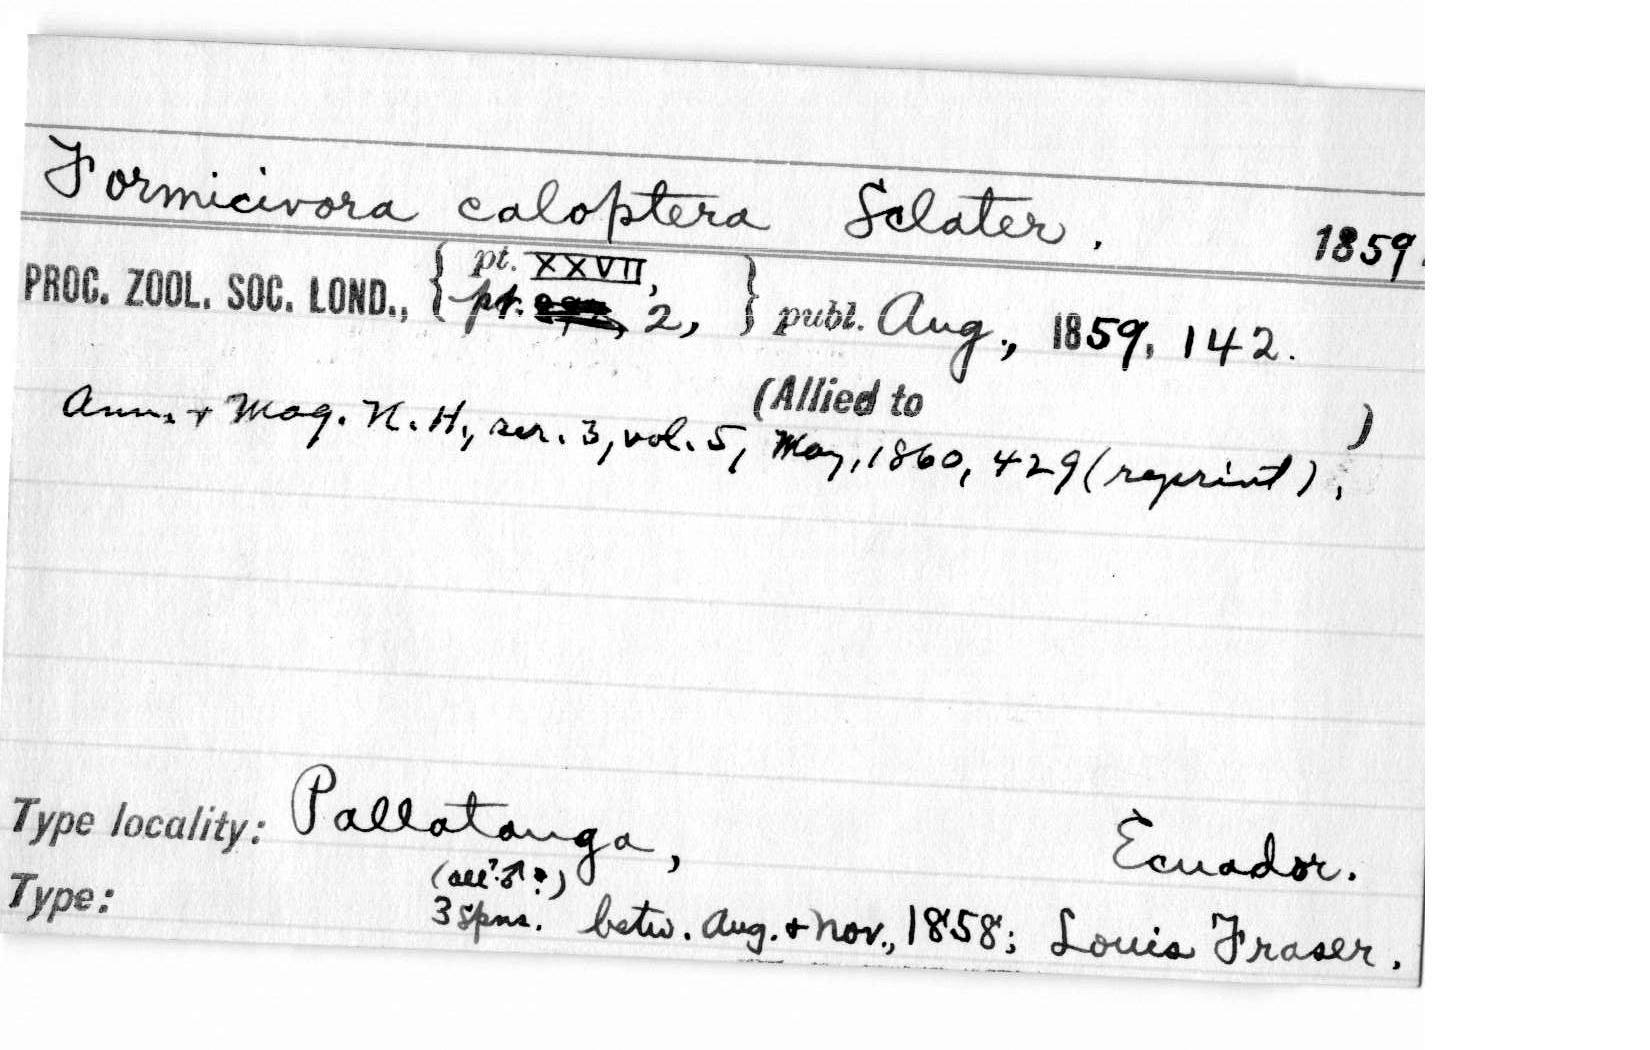 Formicivora caloptera Sclater. 1859.
PROC. ZOOL. SOC. LOND., { pt. XXVII, pt. 2, } publ. Aug., 1859, 142.
(Allied to )
Ann. + Mag. N. H., ser. 3, vol. 5, May, 1860, 429 (reprint).
Type locality: Pallatanga, Ecuador.
(all ♂?)
Type: 3 spns. betw. Aug. + Nov., 1858; Louis Fraser.